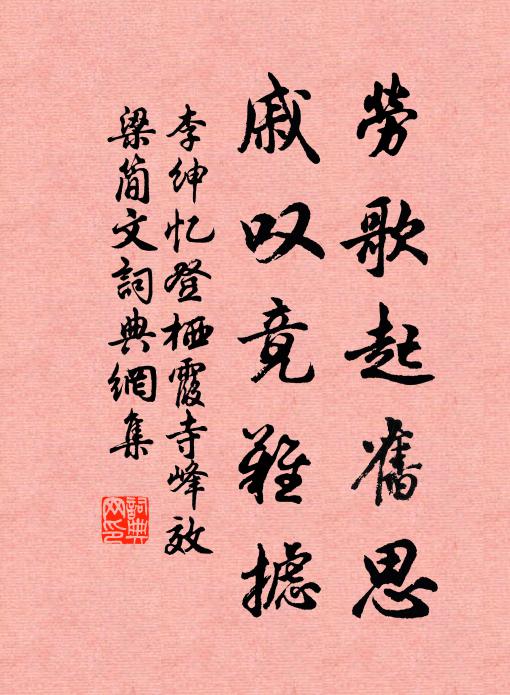 勞歌起舊思
戚叹竟難攄
李紳忆登栖霞寺峰效
梁简文詞典網集
詞典网印